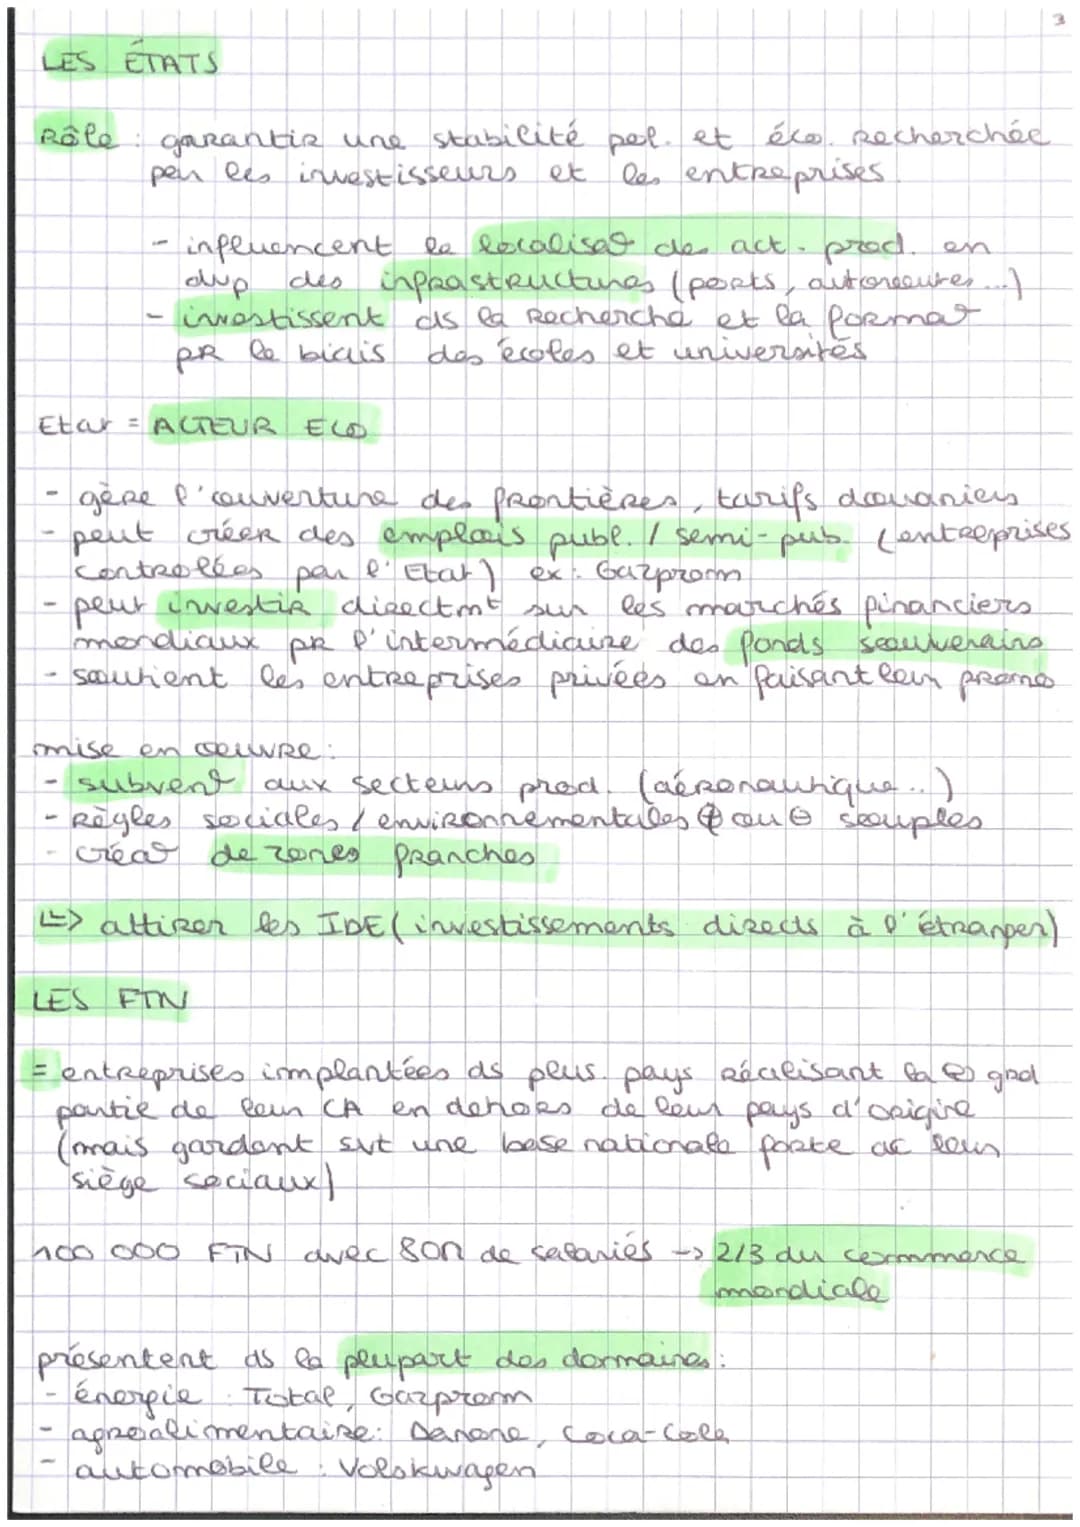 3
LES ÉTATS
Rôle : garantir une stabilité pol. et éco. recherchée
par les investisseurs et les entreprises.
- influencent la localisat° des act. prod. en
dvp des infrastructures (ports, autoroutes ...)
- investissent ds la recherche et la format°
pr le biais des écoles et universités
Etat = ACTEUR ECO
- gère l'ouverture des frontières, tarifs douaniers
- peut créer des emplois publ. / semi-pub. (entreprises
controllées par l'Etat) ex : Gazprom
- peut investir directmt sur les marchés financiers
mondiaux pr l'intermédiaire des fonds souverains
- soutient les entreprises privées en faisant leur promo
mise en oeuvre :
- subvent° aux secteurs prod. (aéronautique ..)
- règles sociales / environnementales ⊕ ou ⊖ souples
- créat° de zones franches
↳> attirer les IDE (investissements directs à l'étranger)
LES FTN
= entreprises implantées ds plus. pays réalisant la ⊕ grd
partie de leur CA en dehors de leur pays d'origine
(mais gardant svt une base nationale forte ac leur
siège sociaux)
100 000 FTN avec 80n de salariés -> 2/3 du commerce
mondiale
présentent ds la plupart des domaines :
- énergie : Total, Gazprom
- agroalimentaire : Danone, Coca-Cola
- automobile : Volskwagen